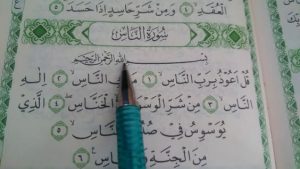 الْعُقَدِ ٤ وَمِنْ شَرِّ حَاسِدٍ إِذَا حَسَدَ ٥
سُورَةُ النَّاسِ
بِسْمِ اللهِ الرَّحْمٰنِ الرَّحِيمِ
قُلْ أَعُوذُ بِرَبِّ النَّاسِ ١ النَّاسِ ٢ إِلٰهِ
النَّاسِ ٣ مِنْ شَرِّ الْخَنَّاسِ ٤ الَّذِي
يُوَسْوِسُ فِي النَّاسِ ٥
مِنَ الْجِنَّةِ ٦